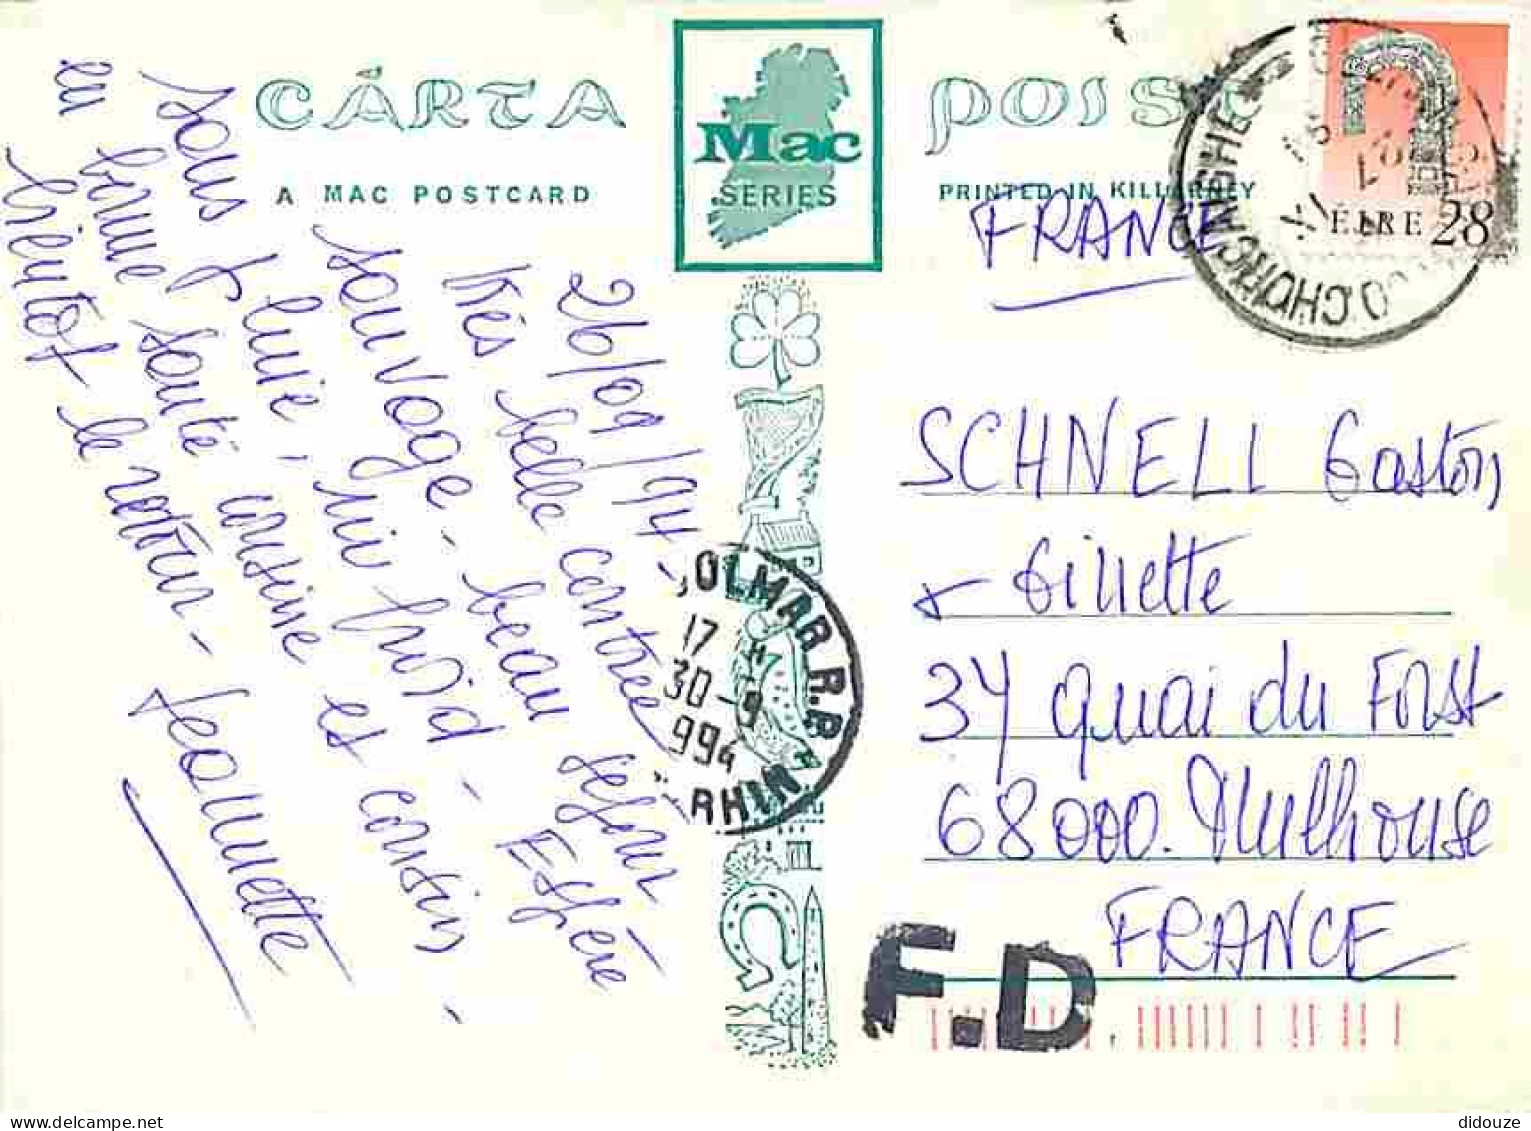 CÁRTA
A MAC POSTCARD
Mac
SERIES
POIST
PRINTED IN KILLARNEY
FRANCE
EIRE 28
CHORCAIGHE
26/09/94 -
très belle contrée
sauvage - beau séjour
sous pluie, ni froid - Espère
en bonne santé cousine et cousin -
bientôt le retour -
Jeannette
COLMAR R.P.
17 H
30-9
994
RHIN
SCHNELL Gaston
+ Gillette
34 Quai du Forst
68000. Mulhouse
FRANCE
F.D.
didouze